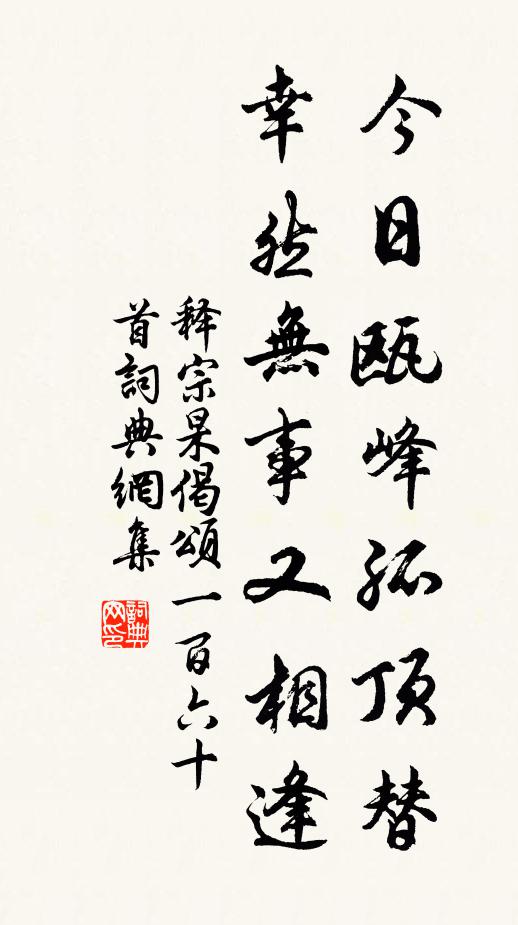 今日瓯峰孤顶替
幸然無事又相逢
释宗杲偈頌一百六十
首詞典網集
詞典网印